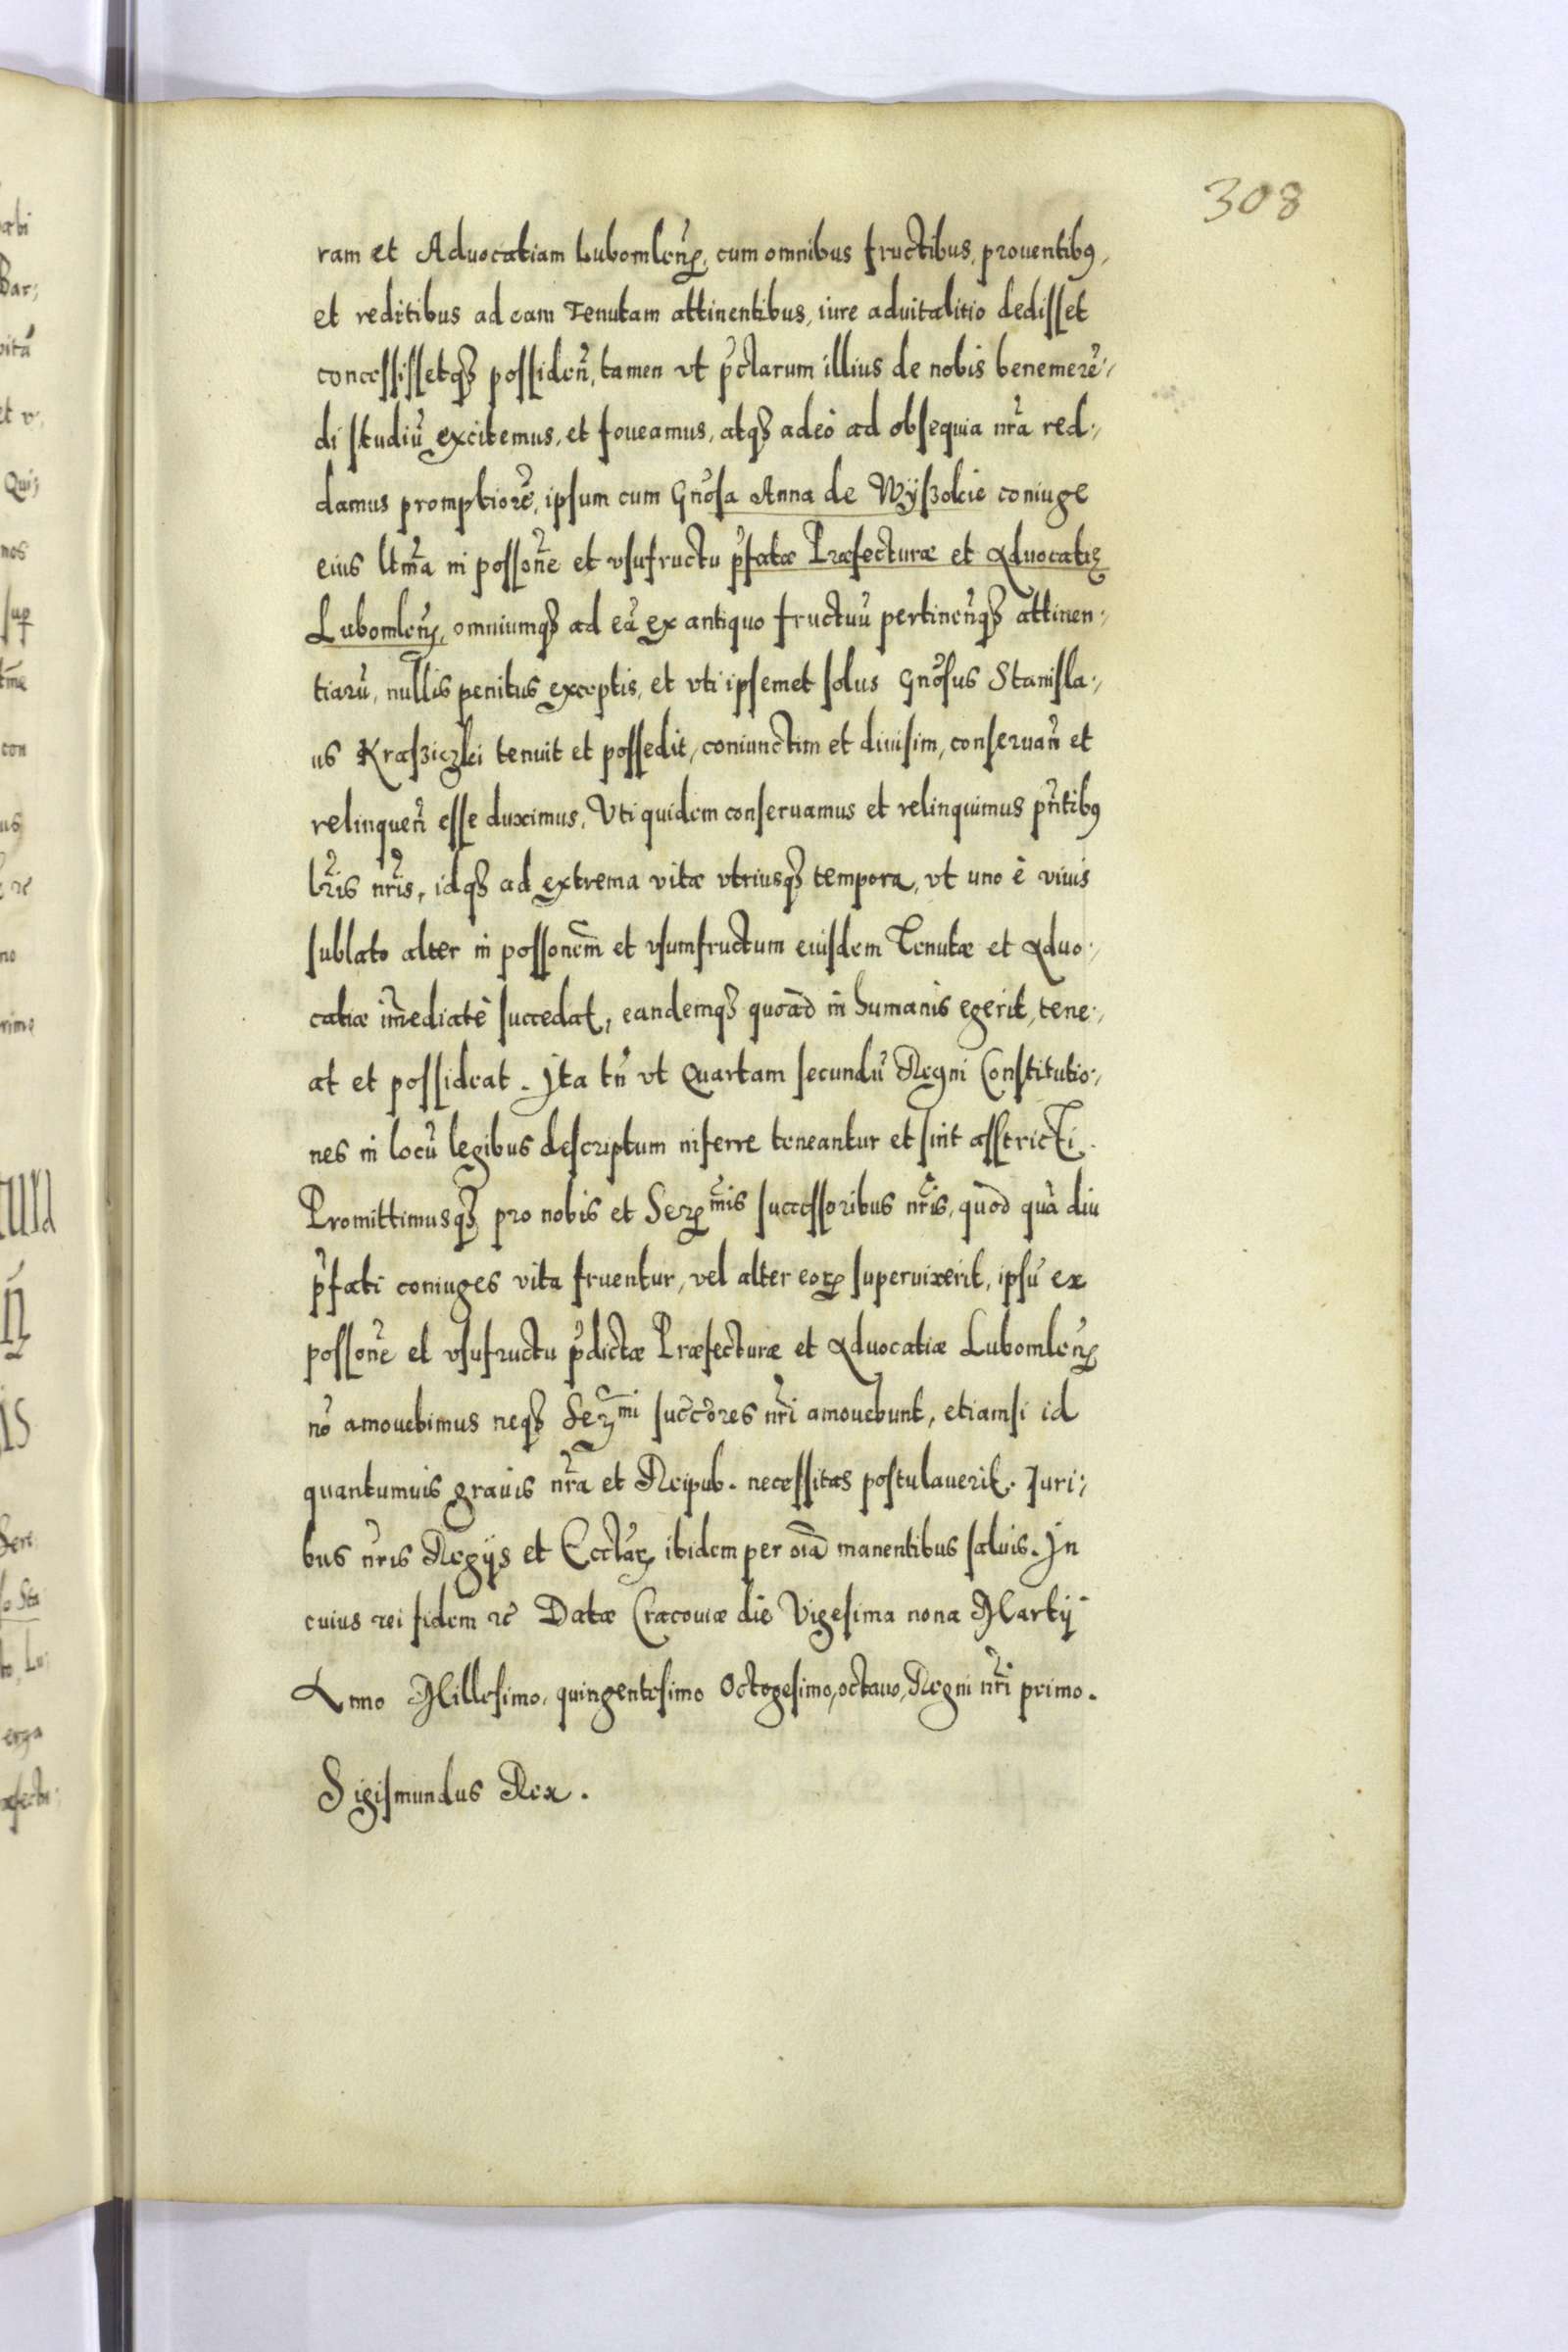 308
ram et Aduocatiam Lubomlen̄, cum omnibus fructibus, prouentibꝰ,
et reditibus ad eam Tenutam attinentibus, iure aduitalitio dedisset
concessissetqꝫ possiden̄, tamen vt p̄clarum illius de nobis benemerē-
di studiū excitemus, et foueamus, atqꝫ adeò ad obsequia nr̄a red-
damus promptiorē, ipsum cum Gn̄osa Anna de Wÿszokie coniuge
eius ltm̄a in posson̄e et vsufructu p̄fatæ Præfecturæ et Aduocatię
Lubomlen̄, omniumqꝫ ad eā ex antiquo fructuū pertinen̄qꝫ attinen-
tiarū, nullis penitus exceptis, et vti ipsemet solus Gn̄osus Stanisla-
us Krasziczki tenuit et possedit, coniunctim et diuisim, conseruan̄ et
relinquen̄ esse duximus, Vti quidem conseruamus et relinquimus pn̄tibꝰ
lr̄is nr̄is, idqꝫ ad extrema vitæ vtriusqꝫ tempora, vt uno è viuis
sublato alter in possonem̄ et vsumfructum eiusdem Tenutæ et Aduo-
catiæ im̄ediatè succedat, eandemqꝫ quoad in humanis egerit, tene-
at et possideat. Ita tn̄ vt Quartam secundū Regni Constitutio-
nes in locū legibus descriptum inferre teneantur et sint asstricti.
Promittimusqꝫ pro nobis et Ser̄mis successoribus nr̄is, quòd quàdiu
p̄fati coniuges vita fruentur, vel alter eoꝝ superuixerit, ipsū ex
posson̄e et vsufructu p̄dictæ Præfecturæ et Aduocatiæ Lubomlen̄
nō amouebimus neqꝫ Ser̄mi succ̄ores nr̄i amouebunt, etiamsi id
quantumuis grauis nr̄a et Reipub. necessitas postulauerit. Juri-
bus nr̄is Regijs et Eccl̄aꝝ ibidem per oīa manentibus saluis. In
cuius rei fidem ꝛc̄ Datæ Cracouiæ die Vigesima nona Martij
Anno Millesimo, quingentesimo Octogesimo, octauo, Regni nr̄i primo.
Sigismundus Rex.